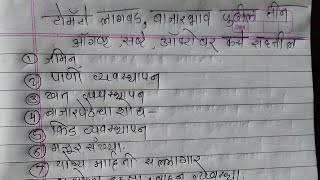 टोमॅटो लागवड, बाजारभाव पुढील तीन
ऑगस्ट, सप्टे, ऑक्टोबर कसे राहतील
① जमिन
② पाणी व्यवस्थापन
③ खत व्यवस्थापन
④ बाजारपेठेचा शोध -
⑤ किड व्यवस्थापन
⑥ मजूर संख्या.
⑦ योग्य माहिती सल्लागार